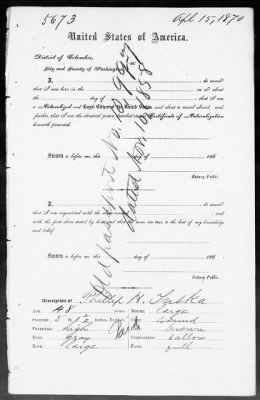 5673
Apl. 15, 1870
United States of America.
District of Columbia,
City and County of Washington
Old passport No.
dated Nov. 10, 1858
I, do swear
that I was born in the on or about
the day of , that I am
a Naturalized and Loyal Citizen of the United States and about to travel abroad; and
further, that I am the identical person described in the Certificate of Naturalization
herewith presented.
SWORN to before me this day of 186
Notary Public.
I, do swear
that I am acquainted with the
and with the facts above stated by and that the same are true to the best of my knowledge
and belief.
SWORN to before me this day of 186
Notary Public.
Description of Phillip H.
AGE: 48 years. MOUTH: large
STATURE: 5 feet inches, English. CHIN: round
FOREHEAD: high HAIR: brown
EYES: gray COMPLEXION: sallow
NOSE: large FACE: full